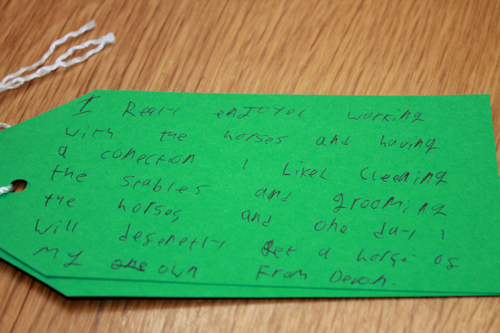 I Realy enjoyed working
with the horses and having
a conection I liked cleening
the stables and grooming
the horses and one day i
will desenetly get a horse of
my own From Devon.